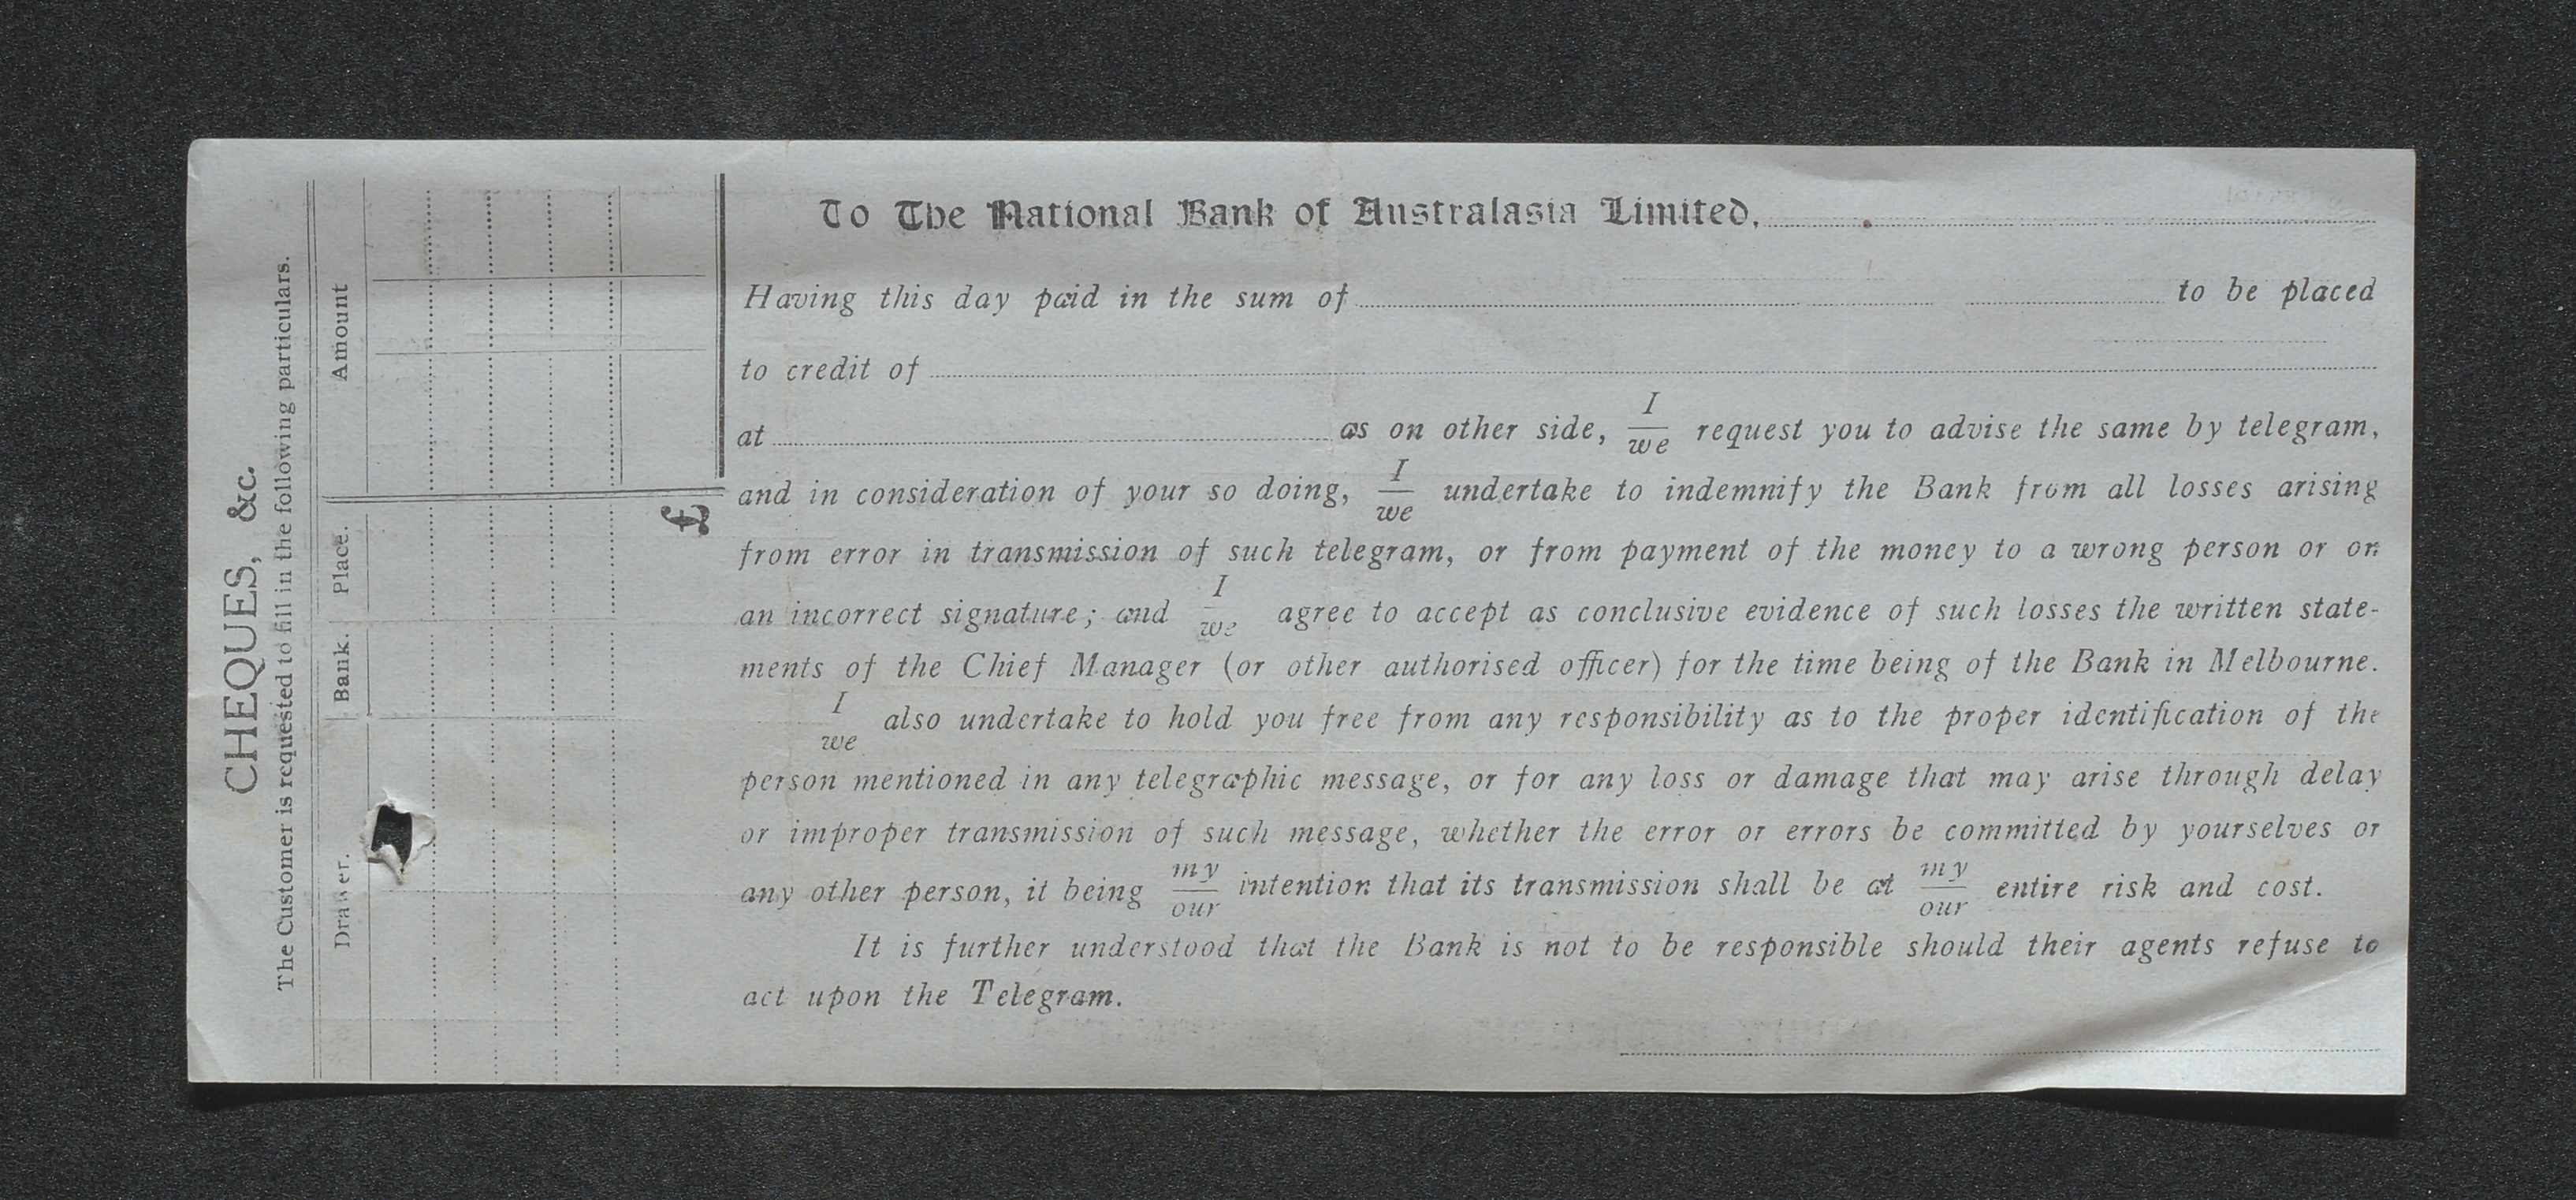 CHEQUES, &c.
The Customer is requested to fill in the following particulars.
Drawer. Bank. Place. Amount
£
To The National Bank of Australasia Limited,
Having this day paid in the sum of to be placed
to credit of
at as on other side, I/we request you to advise the same by telegram,
and in consideration of your so doing, I/we undertake to indemnify the Bank from all losses arising
from error in transmission of such telegram, or from payment of the money to a wrong person or on
an incorrect signature; and I/we agree to accept as conclusive evidence of such losses the written state-
ments of the Chief Manager (or other authorised officer) for the time being of the Bank in Melbourne.
I/we also undertake to hold you free from any responsibility as to the proper identification of the
person mentioned in any telegraphic message, or for any loss or damage that may arise through delay
or improper transmission of such message, whether the error or errors be committed by yourselves or
any other person, it being my/our intention that its transmission shall be at my/our entire risk and cost.
It is further understood that the Bank is not to be responsible should their agents refuse to
act upon the Telegram.